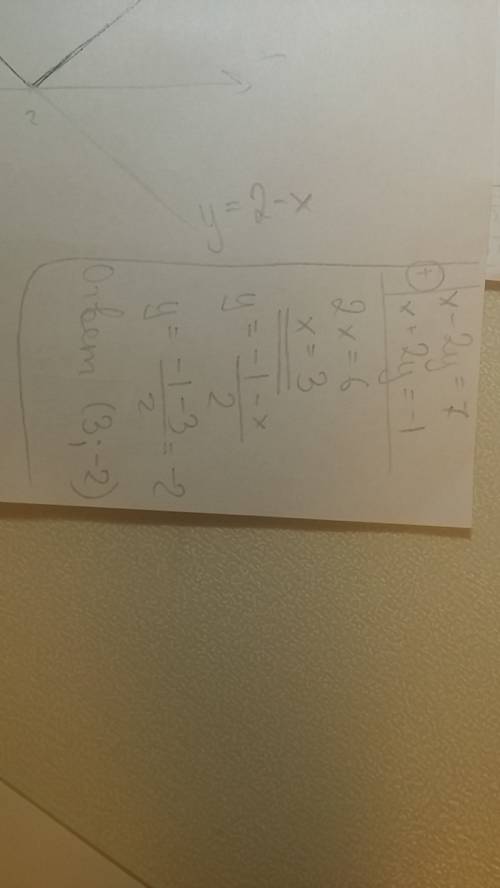 2
y = 2 - x
x - 2y = 7
+ x + 2y = -1
2x = 6
x = 3
y = \frac{-1-x}{2}
y = \frac{-1-3}{2} = -2
Ответ (3; -2)